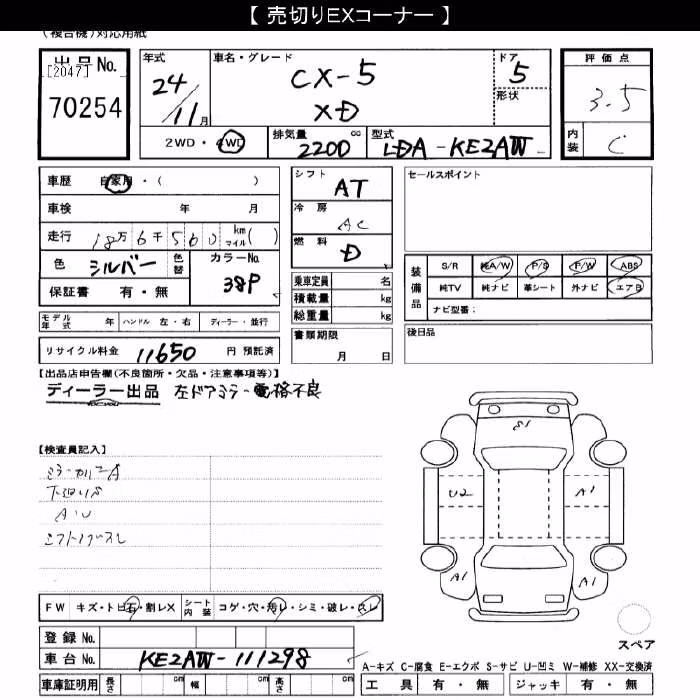 【 売切りEXコーナー 】
(複合機)対応用紙
出品 No.
[2047]
70254
年式 24/11月
車名・グレード CX-5
XD
ドア 5
形状
評価点 3.5
内装 C
2WD・4WD
排気量 2200 cc
型式 LDA-KE2AW
車歴 自家用・( )
車検 年 月
走行 18万6千560 km マイル( )
色 シルバー 色替
カラーNo. 38P
保証書 有・無
シフト AT
冷房 AC
燃料 D
乗車定員 名
積載量 kg
総重量 kg
セールスポイント
装備品
S/R 純A/W P/S P/W ABS
純TV 純ナビ 革シート 外ナビ エアB
ナビ型番：
モデル年式 年 ハンドル 左・右 ディーラー・並行
書類期限
月 日
後日品
リサイクル料金 11650 円 預託済
【出品店申告欄(不良箇所・欠品・注意事項等)】
ディーラー出品 左ドアミラー電格不良
【検査員記入】
ミラーカバーA
下廻りS
A・U
シフトノブスレ
S1
U2
A1
A1
A1
FW キズ・トビ石・割レX
シート内装 コゲ・穴・汚レ・シミ・破レ・スレ
スペア
登録 No.
車台 No. KE2AW-111298
A-キズ C-腐食 E-エクボ S-サビ U-凹ミ W-補修 XX-交換済
車庫証明用 長さ cm 幅 cm 高さ cm
工具 有・無 ジャッキ 有・無